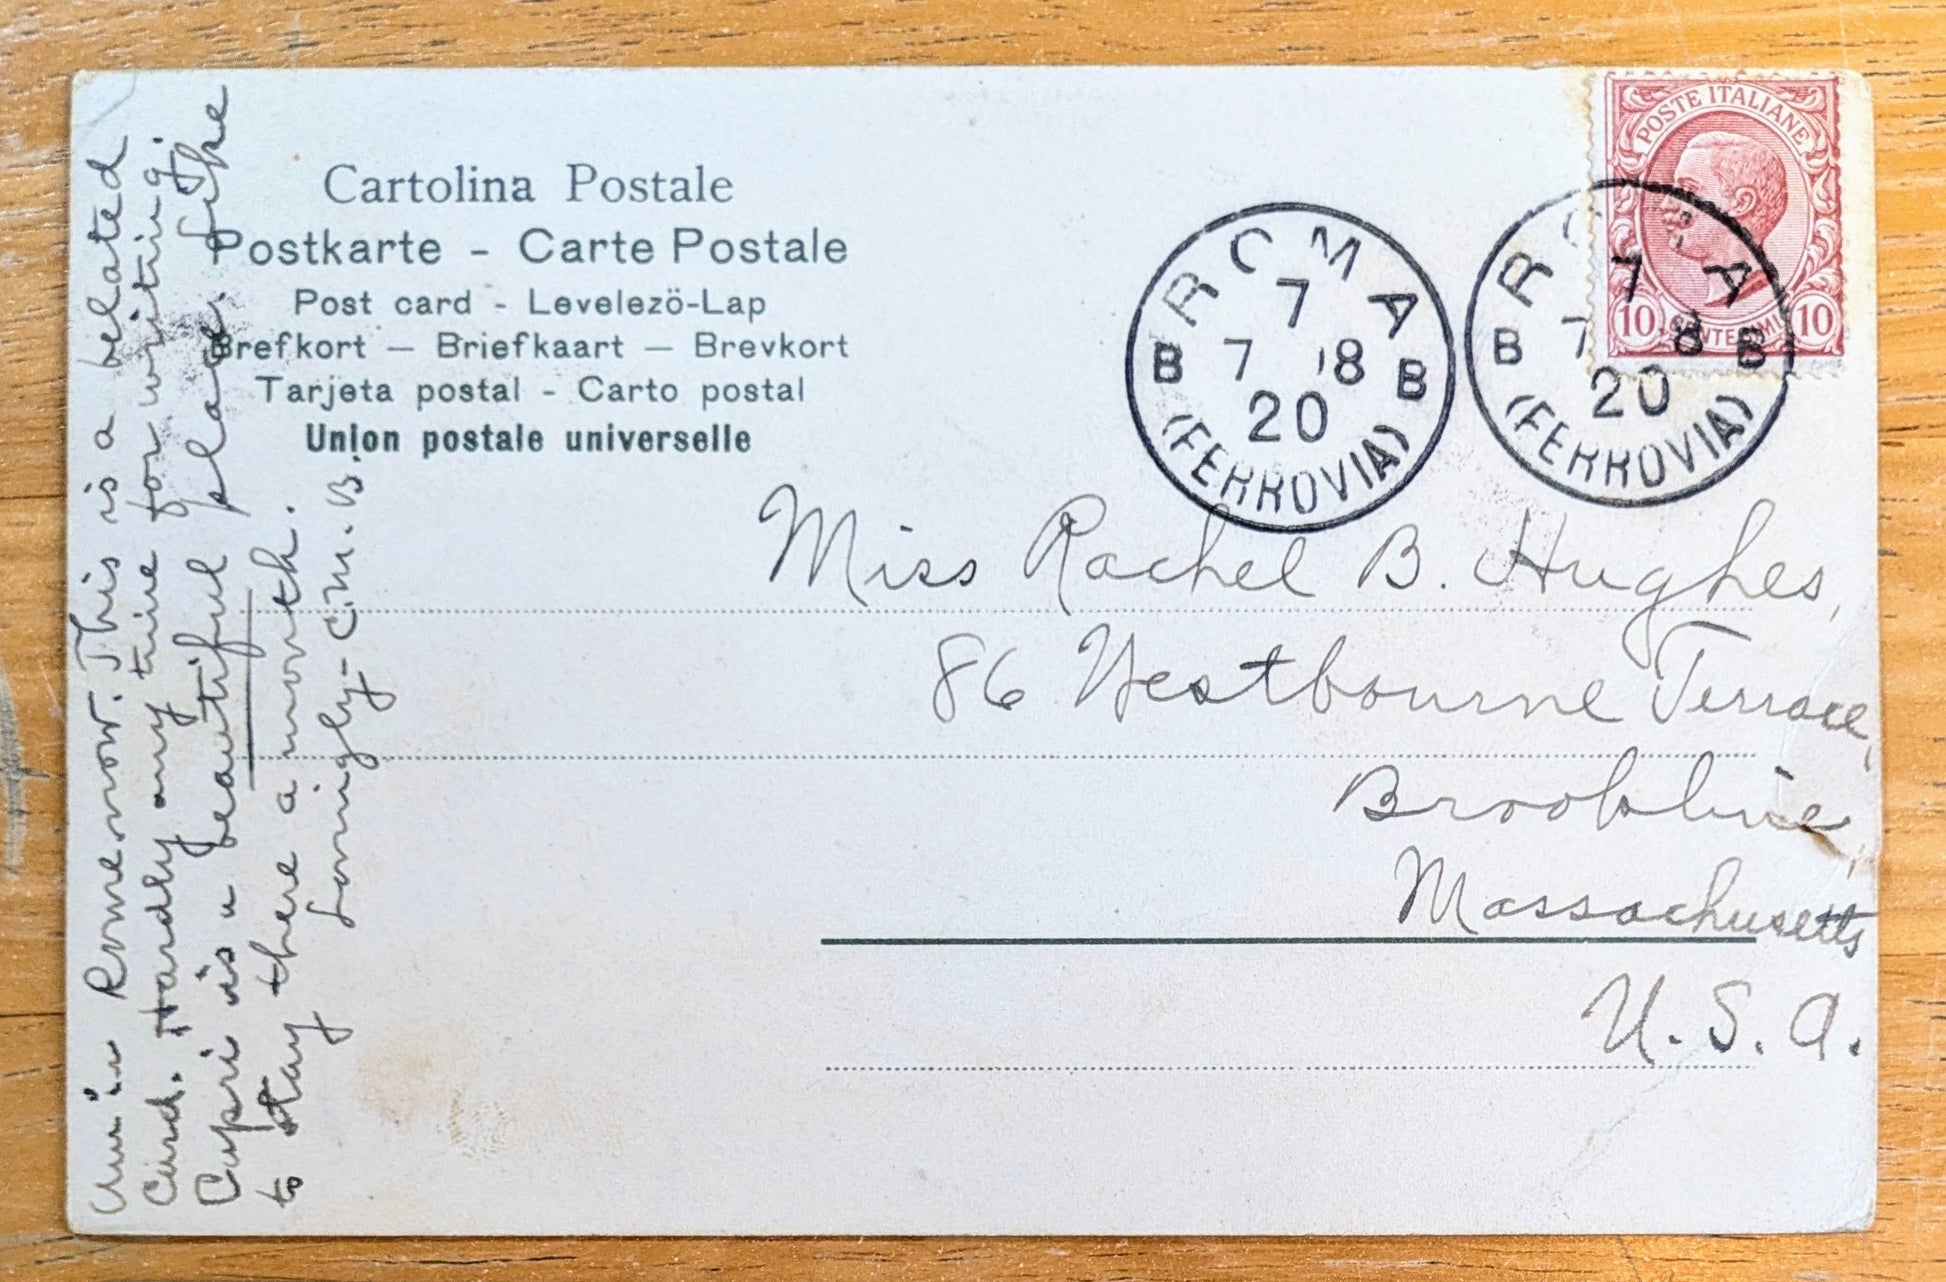 Cartolina Postale
Postkarte - Carte Postale
Post card - Levelezö-Lap
Brefkort — Briefkaart — Brevkort
Tarjeta postal - Carto postal
Union postale universelle
POSTE ITALIANE
10 CENTESIMI 10
ROMA
7
B 7 8 B
20
(FERROVIA)
ROMA
7
B 7 8 B
20
(FERROVIA)
Miss Rachel B. Hughes,
86 Westbourne Terrace,
Brookline,
Massachusetts
U. S. A.
Am in Rome now. This is a belated
Card. Hardly any time for writing.
Capri is a beautiful place. Like
to stay there a month.
Lovingly - C. M. B.